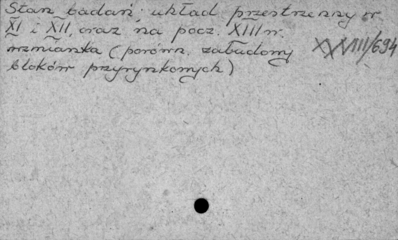 Stan badań: układ przestrzenny w.
XI i XII, oraz na pocz. XIII w.
wzmianka (porówn. zabudowy
bloków przyrynkowych)
XXXVIII/694